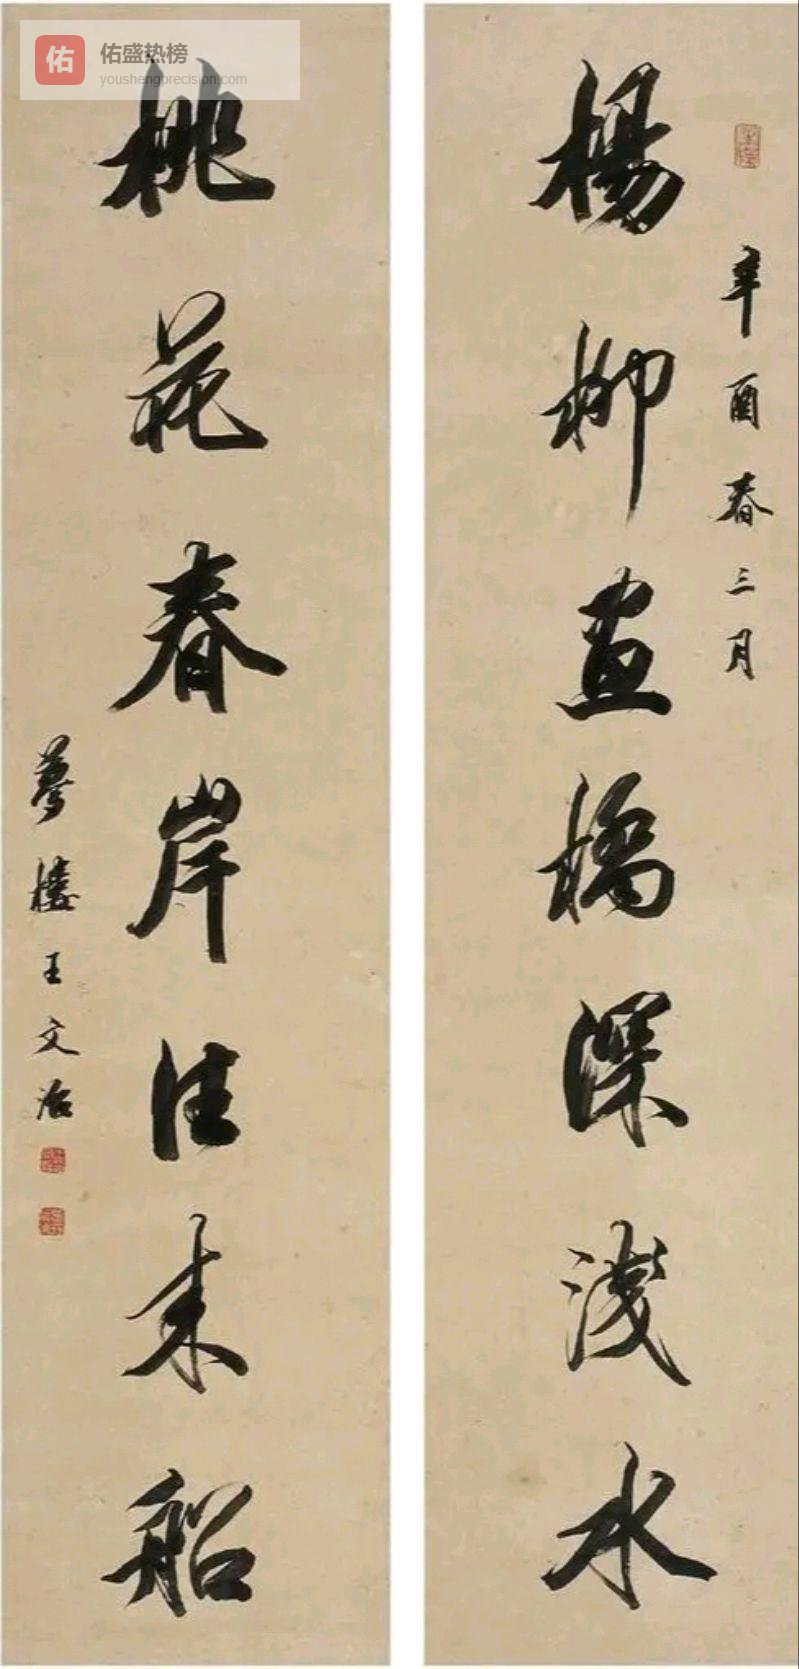 佑盛热榜
youshengprecision.com
佑
辛酉春三月
楊柳画橋深淺水
桃花春岸往来船
夢樓王文治